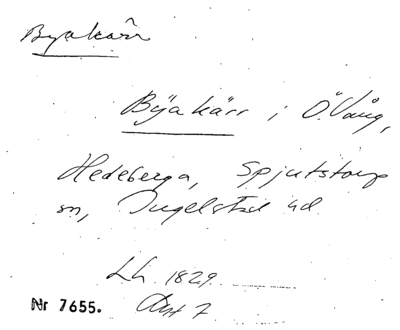 Byakärr
Byakärr i Ö. Vång,
Hedeberga, Spjutstorp
sn, Ingelstad hd
Lh. 1829.
Nr 7655. Akt 7